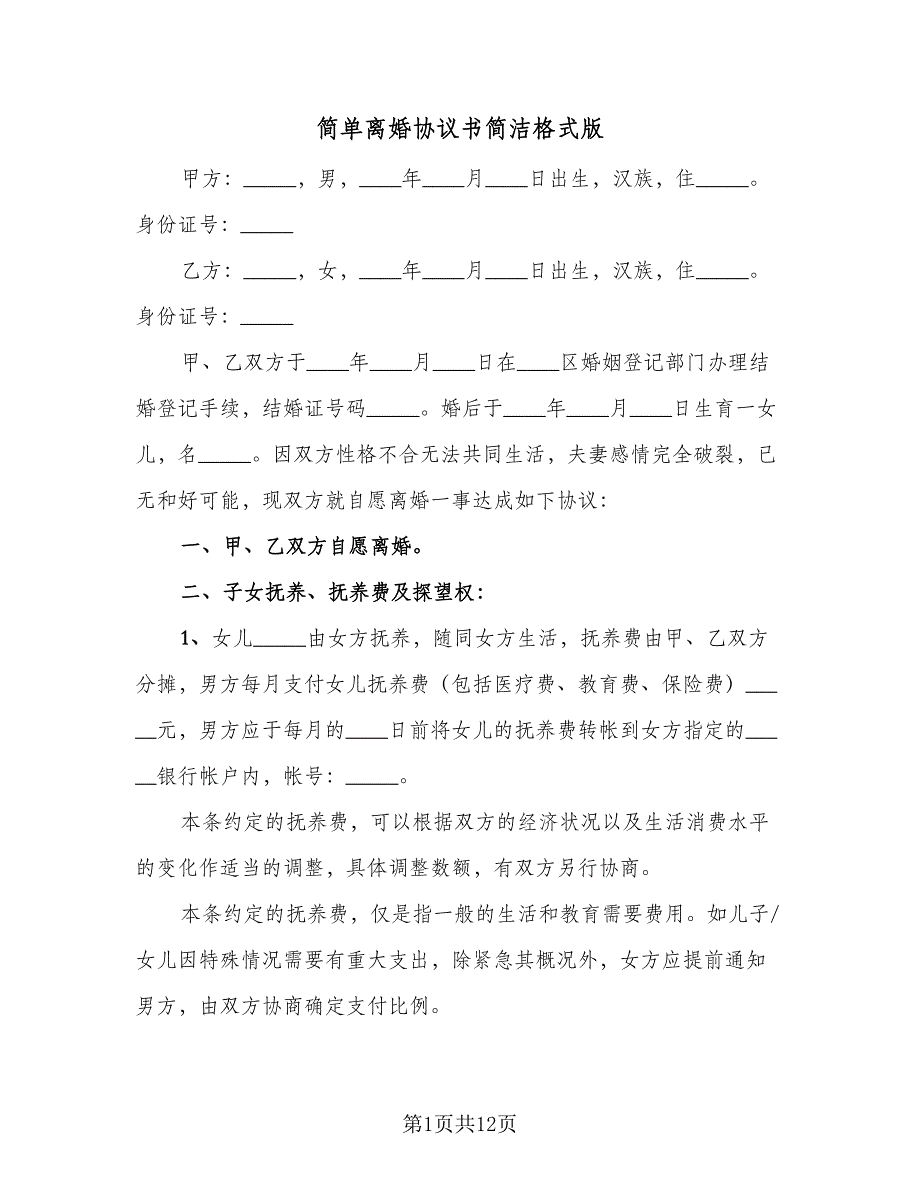 简单离婚协议书简洁格式版
甲方：_____，男，____年____月____日出生，汉族，住_____。
身份证号：_____
乙方：_____，女，____年____月____日出生，汉族，住_____。
身份证号：_____
甲、乙双方于____年____月____日在____区婚姻登记部门办理结
婚登记手续，结婚证号码_____。婚后于____年____月____日生育一女
儿，名_____。因双方性格不合无法共同生活，夫妻感情完全破裂，已
无和好可能，现双方就自愿离婚一事达成如下协议：
一、甲、乙双方自愿离婚。
二、子女抚养、抚养费及探望权：
1、女儿_____由女方抚养，随同女方生活，抚养费由甲、乙双方
分摊，男方每月支付女儿抚养费（包括医疗费、教育费、保险费）___
__元，男方应于每月的____日前将女儿的抚养费转帐到女方指定的___
__银行帐户内，帐号：_____。
本条约定的抚养费，可以根据双方的经济状况以及生活消费水平
的变化作适当的调整，具体调整数额，有双方另行协商。
本条约定的抚养费，仅是指一般的生活和教育需要费用。如儿子/
女儿因特殊情况需要有重大支出，除紧急其概况外，女方应提前通知
男方，由双方协商确定支付比例。
第1页共12页